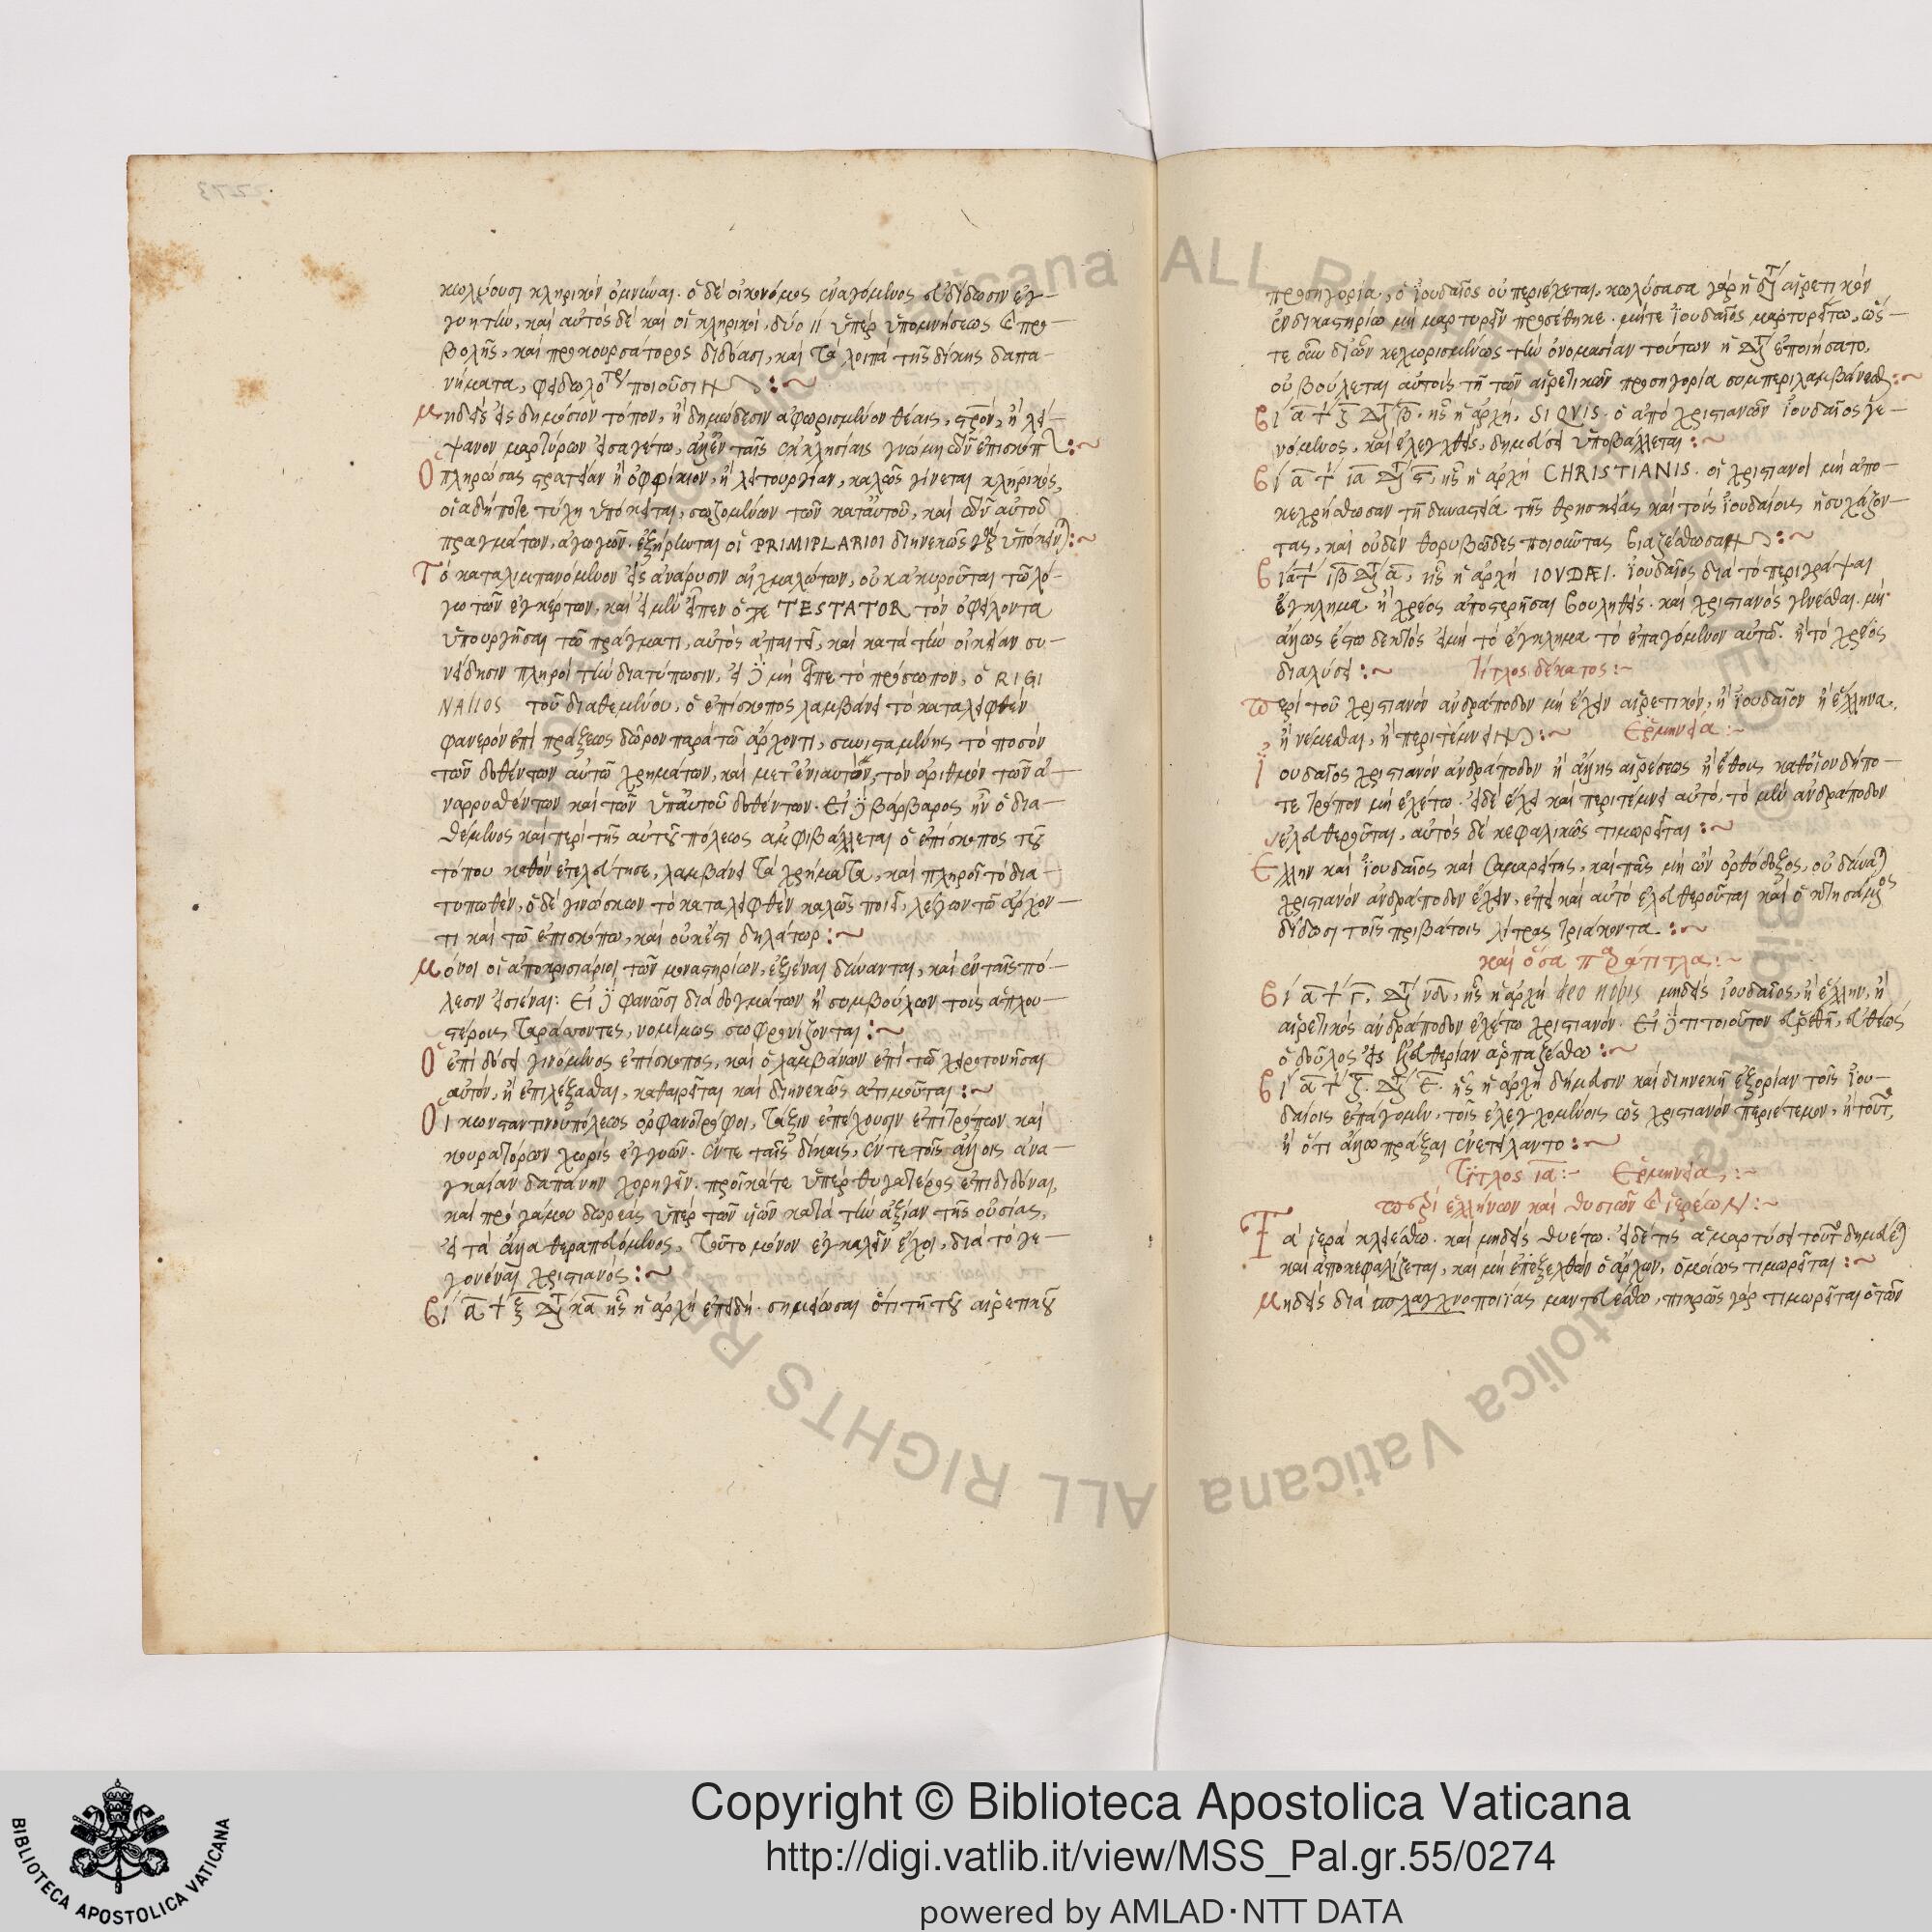 κωλύουσι κληρικόν ὀμνύναι. ὁ δέ οἰκονόμος ἐναγόμενος οὐ δίδωσιν ἐγ-
γυητήν, καί αὐτός δέ καί οἱ κληρικοί, δύο ὑπέρ ὑπομνήσεως καὶ προ-
βολῆς, καί προκουράτορος διδόασι, καί τά λοιπά τῆς δίκης δαπα-
νήματα, ποιοῦσι :~
Μηδείς εἰς δημόσιον τόπον, ἤ δημώδεσιν ἀφωρισμένον θέαις, ἤ λεί-
ψανον μαρτύρων εἰσαγέτω, ταῖς ἐκκλησίαις γνώμῃ τῶν ἐπισκόπ :~
Ὁ πληρώσας στρατείαν ἤ ὀφφίκιον, ἤ λειτουργίαν, καλῶς γίνεται κληρικός,
οἱαδήποτε τύχῃ ὑπόκειται, σωζομένων τῶν κατ' αὐτοῦ, καί τῶν αὐτοῦ
πραγμάτων, ἀγωγῶν. ἐξῄρηνται οἱ PRIMIPLARIOI διηνεκῶς γάρ ὑπόκεινται :~
Τό καταλιμπανόμενον εἰς ἀνάρυσιν αἰχμαλώτων, οὐκ ἀκυροῦται τῷ λό-
γῳ τῶν ἐγκέρτων, καί εἰ μέν εἶπεν ὁ TESTATOR τόν ὀφείλοντα
ὑπουργῆσαι τῷ πράγματι, αὐτός ἀπαιτεῖ, καί κατά τήν οἰκείαν συ-
νείδησιν πληροῖ τήν διατύπωσιν, εἰ δὲ μή εἶπε τό πρόσωπον, ὁ RIGI
NALIOS τοῦ διαθεμένου, ὁ ἐπίσκοπος λαμβάνει τό καταλειφθέν
φανερόν ἐπί πράξεως δῶρον παρά τῷ ἄρχοντι, συνισταμένης τό ποσόν
τῶν δοθέντων αὐτῷ χρημάτων, καί μετ' ἐνιαυτόν, τόν ἀριθμόν τῶν ἀ-
ναρρυσθέντων καί τῶν ὑπ' αὐτοῦ δοθέντων. Εἰ δὲ βάρβαρος ἦν ὁ δια-
θέμενος καί περί τῆς αὐτοῦ πόλεως ἀμφιβάλλεται ὁ ἐπίσκοπος τοῦ
τόπου καθ' ὅν ἐτελεύτησε, λαμβάνει τά χρήματα, καί πληροῖ τό δια-
τυπωθέν, ὁ δέ γινώσκων τό καταλειφθέν καλῶς ποιεῖ, λέγων τῷ ἄρχον-
τι καί τῷ ἐπισκόπῳ, καί οὐκ ἔστι δηλάτωρ :~
Μόνοι οἱ ἀποκρισιάριοι τῶν μοναστηρίων, ἐξιέναι δύνανται, καί ἐν ταῖς πό-
λεσιν εἰσιέναι: Εἰ δὲ φανῶσι διά δογμάτων ἤ συμβούλων τούς ἁπλου-
στέρους ταράσσοντες, νομίμως σωφρονίζονται :~
Ὁ ἐπί δόσει γινόμενος ἐπίσκοπος, καί ὁ λαμβάνων ἐπί τῷ χειροτονῆσαι
αὐτόν, ἤ ἐπιλέξασθαι, καθαιρεῖται καί διηνεκῶς ἀτιμοῦται :~
Οἱ κωνσταντινουπόλεως ὀρφανοτρόφοι, τάξιν ἐπέχουσιν ἐπιτρόπων καί
κουρατόρων χωρίς ἐγγυῶν. ἔν τε ταῖς δίκαις, ἔν τε τοῖς ἄλλοις ἀνα-
γκαίαν δαπάνην χορηγεῖν. προῖκά τε ὑπέρ θυγατέρος ἐπιδιδόναι,
καί πρό γάμου δωρεάς ὑπέρ τῶν υἱῶν κατά τήν ἀξίαν τῆς οὐσίας,
εἰ τά ἅγια θεραπευόμενος, τοῦτο μόνον ἐγκαλεῖν ἔχοι, διά τό γε-
γονέναι χριστιανός :~
Βι α τι ξ Δι κα ἧς ἡ ἀρχή ἐπειδή. σημείωσαι ὅτι τῇ τοῦ αἱρετικοῦ
προσηγορίᾳ, ὁ ἰουδαῖος οὐ περιέχεται, κωλύσασα γάρ ἡ δι αἱρετικόν
ἐν δικαστηρίῳ μή μαρτυρεῖν προσέθηκε. μήτε ἰουδαῖος μαρτυρείτω, ὥς-
τε οὖν δι' ὧν κεχωρισμένως τήν ὀνομασίαν τούτων ἡ Δι ἐποιήσατο,
οὐ βούλεται αὐτούς τῇ τῶν αἱρετικῶν προσηγορίᾳ συμπεριλαμβάνεσθαι :~
Βι α τι ζ Δι β. ἧς ἡ ἀρχή, SI QVIS. ὁ ἀπό χριστιανῶν ἰουδαῖος γε-
νόμενος, καί ἐλεγχθείς, δημεύσει ὑποβάλλεται :~
Βι α τι ια Δι ς, ἧς ἡ ἀρχή CHRISTIANIS. οἱ χριστιανοί μή ἀπο-
κεχρήσθωσαν τῇ δυναστείᾳ τῆς θρησκείας καί τούς ἰουδαίους ἡσυχάζον-
τας, καί οὐδέν θορυβῶδες ποιοῦντας βιαζέσθωσαν :~
Βι α τι ιβ Δι α, ἧς ἡ ἀρχή IOVDÆI. ἰουδαῖος διά τό περιγράψαι
ἔγκλημα ἤ χρέος ἀποστερῆσαι βουληθείς. καί χριστιανός γίνεσθαι. μή
ἄλλως ἔστω δεκτός εἰ μή τό ἔγκλημα τό ἐπαγόμενον αὐτῷ. ἤ τό χρέος
διαλύσει :~ Τίτλος δέκατος :~
Περί τοῦ χριστιανόν ἀνδράποδον μή ἔχειν αἱρετικόν, ἤ ἰουδαῖον ἤ ἕλληνα.
ἤ νέμεσθαι, ἤ περιτέμνειν :~ Ἑρμηνεία :~
Ἰουδαῖος χριστιανόν ἀνδράποδον ἤ ἄλλης αἱρέσεως ἤ ἔθους καθ' οἷον δήπο-
τε τρόπον μή ἐχέτω. εἰ δέ ἔχει καί περιτέμνει αὐτό, τό μέν ἀνδράποδον
ἐλευθεροῦται, αὐτός δέ κεφαλικῶς τιμωρεῖται :~
Ἕλλην καί ἰουδαῖος καί σαμαρείτης, καί πᾶς μή ὤν ὀρθόδοξος, οὐ δύναται
χριστιανόν ἀνδράποδον ἔχειν, ἐπεί καί αὐτό ἐλευθεροῦται καί ὁ κτησάμενος
δίδωσι τοῖς πριβάτοις λίτρας τριάκοντα :~
καί ὅσα παράτιτλα :~
Βι α τι γ, Δι νδ, ἧς ἡ ἀρχή deo nobis μηδείς ἰουδαῖος, ἤ ἕλλην, ἤ
αἱρετικός ἀνδράποδον ἐχέτω χριστιανόν. Εἰ δὲ τι τοιοῦτον εὑρεθῇ, εὐθέως
ὁ δοῦλος εἰς ἐλευθερίαν ἁρπαζέσθω :~
Βι α τι ζ. Δι ε. ἧς ἡ ἀρχή δήμευσιν καί διηνεκῆ ἐξορίαν τοῖς ἰου-
δαίοις ἐπάγομεν, τοῖς ἐλεγχομένοις ὡς χριστιανόν περιέτεμον, ἤ τοῦτο,
ἤ ὅτι ἄλλῳ πράξαι ἐνετείλαντο :~
Τίτλος ια :~ Ἑρμηνεία :~
Περί ἑλλήνων καί θυσιῶν καὶ ἱερέων :~
Τά ἱερά κλειέσθω. καί μηδείς θυέτω. εἰ δέ τις ἁμαρτύσει τοῦτο δημεύεται
καί ἀποκεφαλίζεται, καί μή ἐπεξελθών ὁ ἄρχων, ὁμοίως τιμωρεῖται :~
Μηδείς διά σπλαγχνοποιίας μαντευέσθω, πικρῶς γάρ τιμωρεῖται ὁ τῶν
Copyright © Biblioteca Apostolica Vaticana
http://digi.vatlib.it/view/MSS_Pal.gr.55/0274
powered by AMLAD·NTT DATA
BIBLIOTECA APOSTOLICA VATICANA